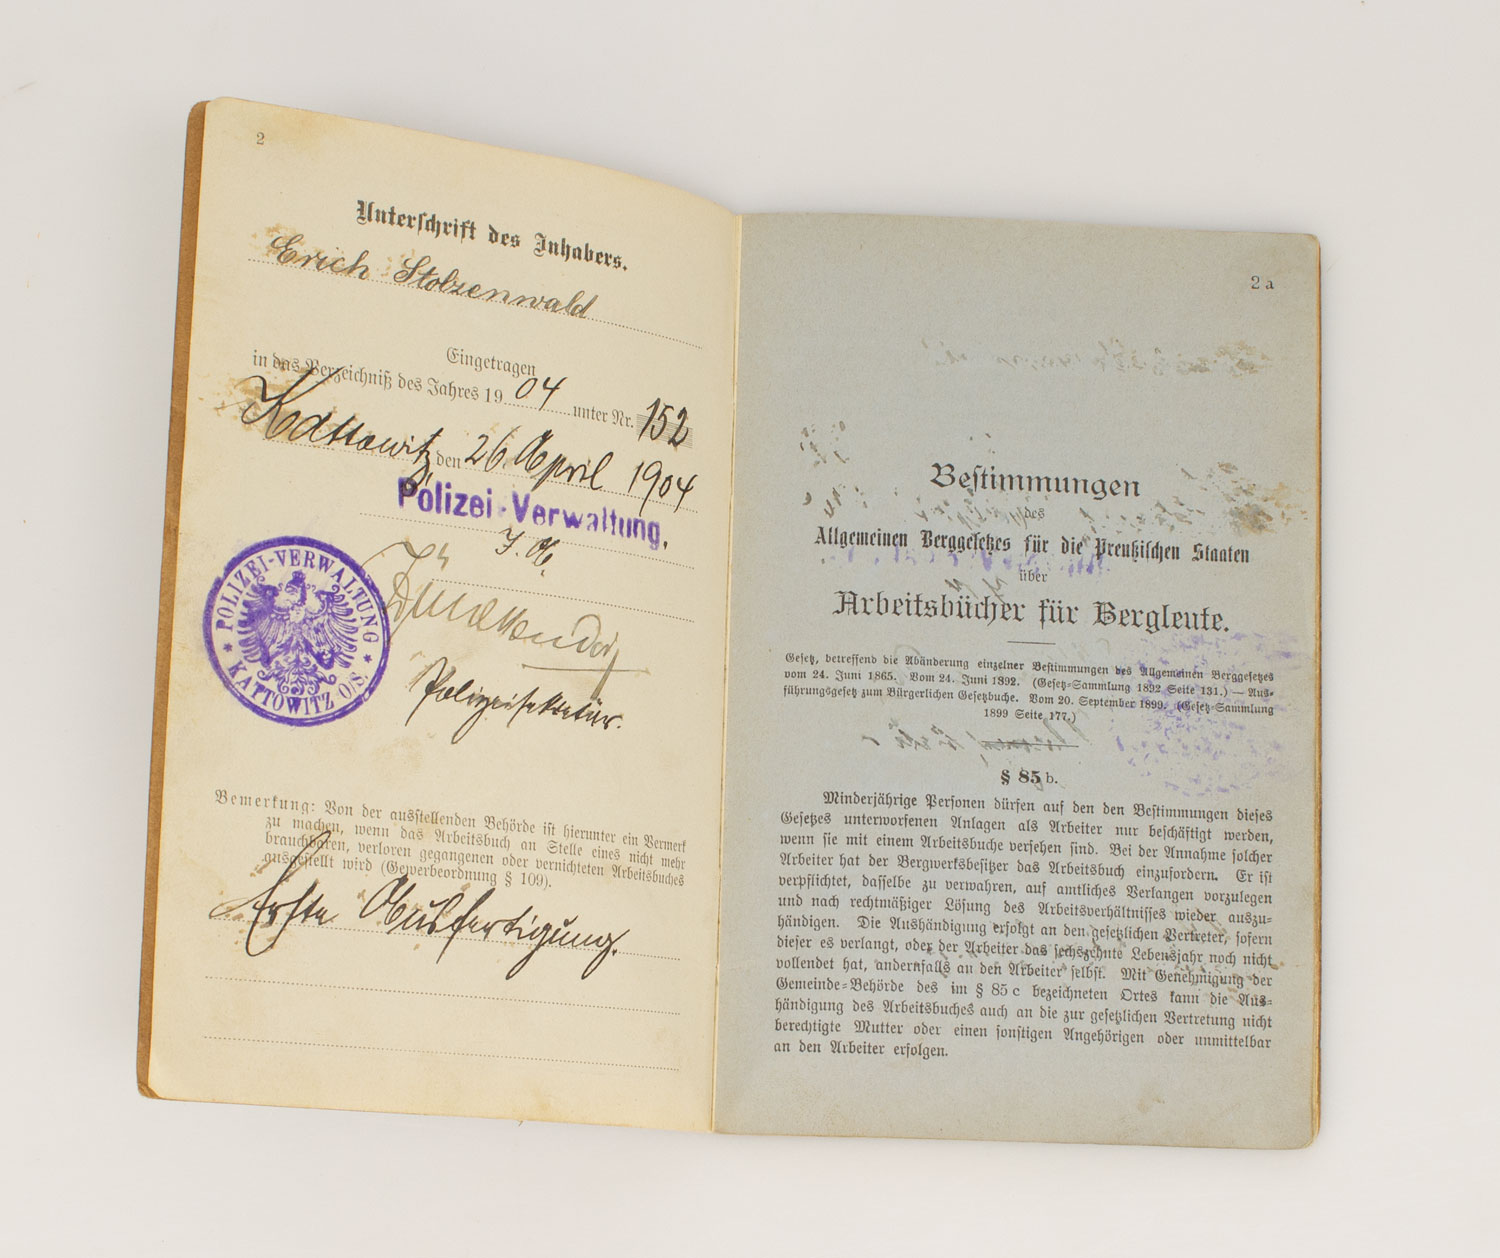 2
Unterschrift des Inhabers.
Erich Stolzenwald
Eingetragen
in das Verzeichniß des Jahres 1904 unter Nr. 152
Kattowitz, den 26. April 1904
Polizei-Verwaltung.
I. A.
Polizeisekretär.
POLIZEI-VERWALTUNG
* KATTOWITZ O/S. *
Bemerkung: Von der ausstellenden Behörde ist hierunter ein Vermerk
zu machen, wenn das Arbeitsbuch an Stelle eines nicht mehr
brauchbaren, verloren gegangenen oder vernichteten Arbeitsbuches
ausgestellt wird (Gewerbeordnung § 109).
Erste Ausfertigung.
2 a
Bestimmungen
des
Allgemeinen Berggesetzes für die Preußischen Staaten
über
Arbeitsbücher für Bergleute.
Gesetz, betreffend die Abänderung einzelner Bestimmungen des Allgemeinen Berggesetzes
vom 24. Juni 1865. Vom 24. Juni 1892. (Gesetz-Sammlung 1892 Seite 131.) — Aus-
führungsgesetz zum Bürgerlichen Gesetzbuche. Vom 20. September 1899. (Gesetz-Sammlung
1899 Seite 177.)
§ 85 b.
Minderjährige Personen dürfen auf den den Bestimmungen dieses
Gesetzes unterworfenen Anlagen als Arbeiter nur beschäftigt werden,
wenn sie mit einem Arbeitsbuche versehen sind. Bei der Annahme solcher
Arbeiter hat der Bergwerksbesitzer das Arbeitsbuch einzufordern. Er ist
verpflichtet, dasselbe zu verwahren, auf amtliches Verlangen vorzulegen
und nach rechtmäßiger Lösung des Arbeitsverhältnisses wieder auszu-
händigen. Die Aushändigung erfolgt an den gesetzlichen Vertreter, sofern
dieser es verlangt, oder der Arbeiter das sechszehnte Lebensjahr noch nicht
vollendet hat, andernfalls an den Arbeiter selbst. Mit Genehmigung der
Gemeinde-Behörde des im § 85 c bezeichneten Ortes kann die Aus-
händigung des Arbeitsbuches auch an die zur gesetzlichen Vertretung nicht
berechtigte Mutter oder einen sonstigen Angehörigen oder unmittelbar
an den Arbeiter erfolgen.